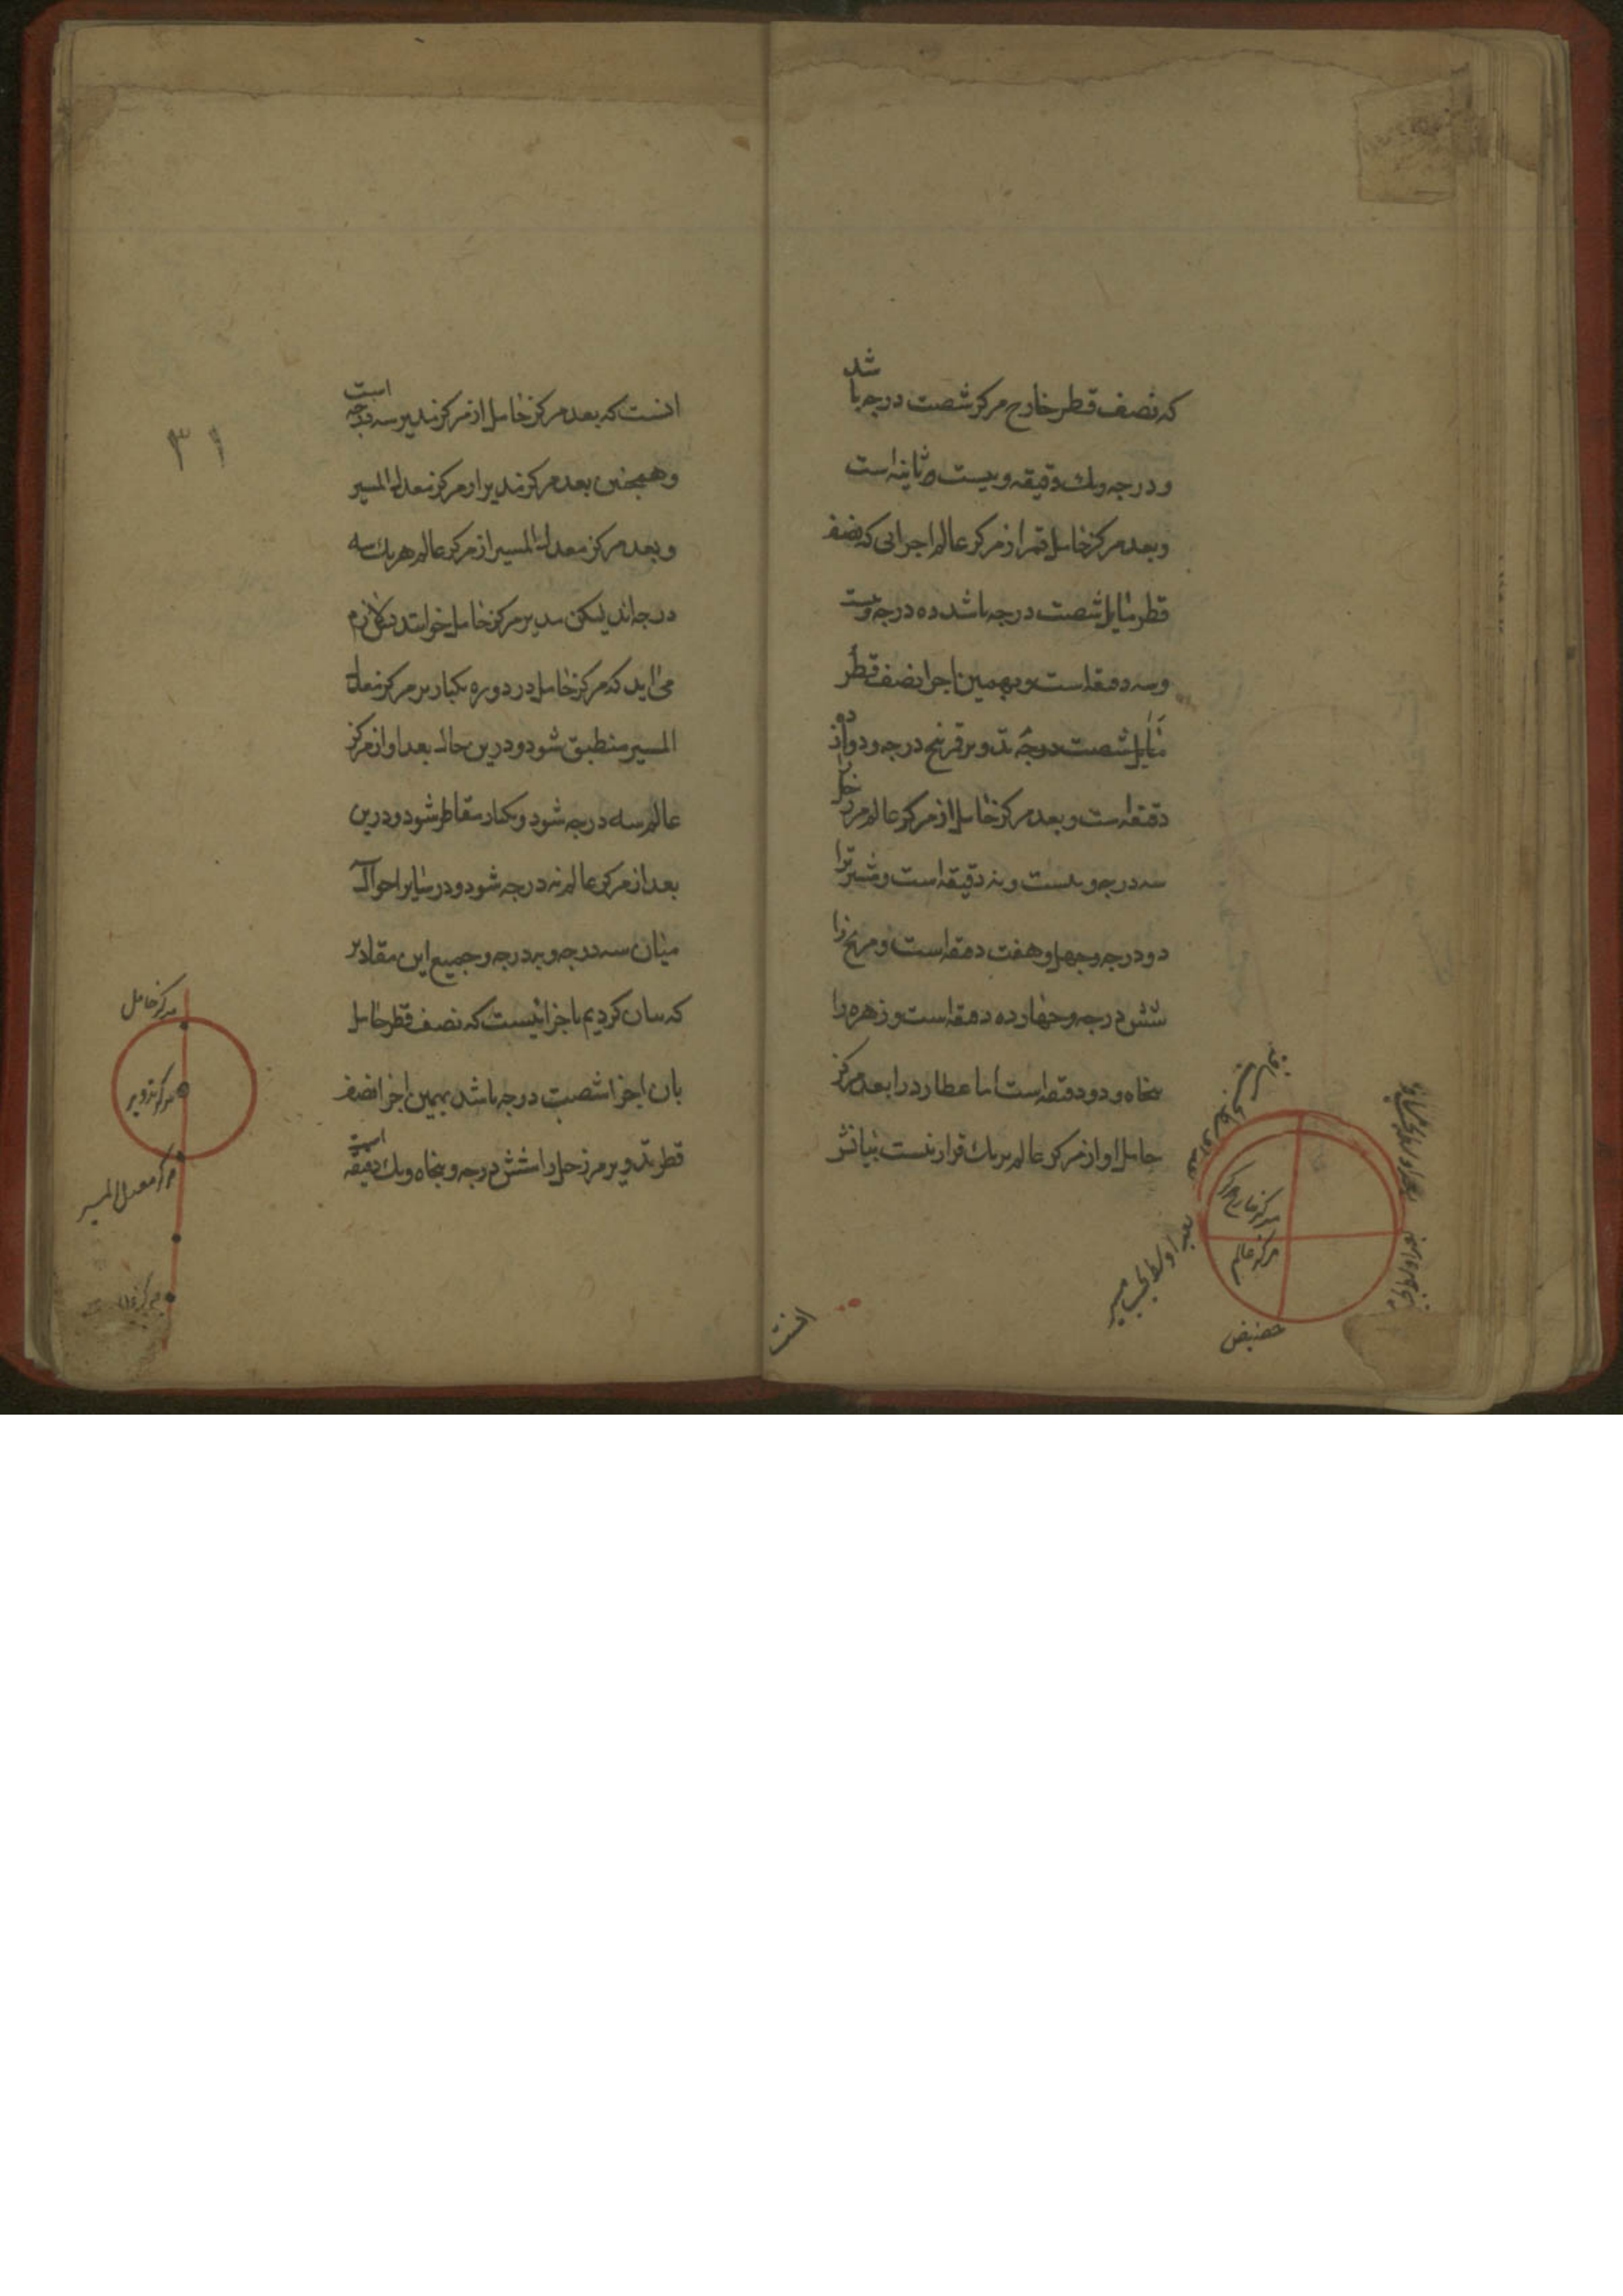 که نصف قطر خارج مرکز شصت درجه باشد
و درجه و یک دقیقه و بیست ثانیه است
و بعد مرکز حامل قمر از مرکز عالم اجزایی که نصف
قطر مایل شصت درجه باشد ده درجه و بیست
و سه دقیقه است و بهمین اجزا نصف قطر
مایل شصت درجه تدویر قمر پنج درجه و دوازده
دقیقه است و بعد مرکز حامل از مرکز عالم مر زحل را
سه درجه و بیست و نه دقیقه است و مشتری را
دو درجه و چهل و هفت دقیقه است و مریخ را
شش درجه و چهارده دقیقه است و زهره را
پنجاه و دو دقیقه است اما عطارد را بعد مرکز
حامل او از مرکز عالم بر یک قرار نیست بیانش
مرکز خارج مرکز
مرکز عالم
بعد اوسط بحسب مسیر
حضیض
انست
انست که بعد مرکز حامل از مرکز مدیر سه درجه است
و همچنین بعد مرکز مدیر از مرکز معدل المسیر
و بعد مرکز معدل المسیر از مرکز عالم هر یک سه
درجه اند لیکن مدیر مرکز حامل لازم
می اید که مرکز حامل در دوره یکبار بر مرکز معدل
المسیر منطبق شود و درین حال بعد او از مرکز
عالم سه درجه شود و یکبار مقاطر شود و درین
بعد از مرکز عالم نه درجه شود و در سایر احوال
میان سه درجه و نه درجه و جمیع این مقادیر
که بیان کردیم باجزائیست که نصف قطر حامل
بان اجزا شصت درجه باشد بهمین اجزا نصف
قطر تدویر مر زحل را شش درجه و پنجاه و یک دقیقه است
۳۱
مرکز حامل
مرکز تدویر
مرکز معدل المسیر